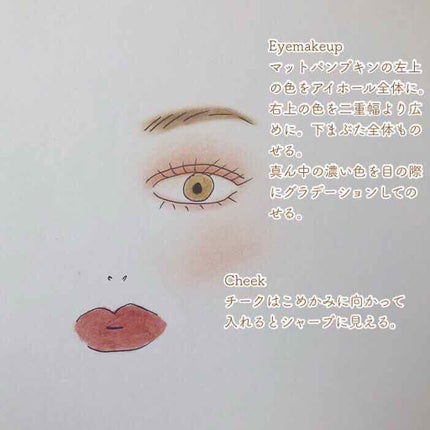 Eyemakeup
マットパンプキンの左上
の色をアイホール全体に。
右上の色を二重幅より広
めに。下まぶた全体もの
せる。
真ん中の濃い色を目の際
にグラデーションしての
せる。
Cheek
チークはこめかみに向かって
入れるとシャープに見える。